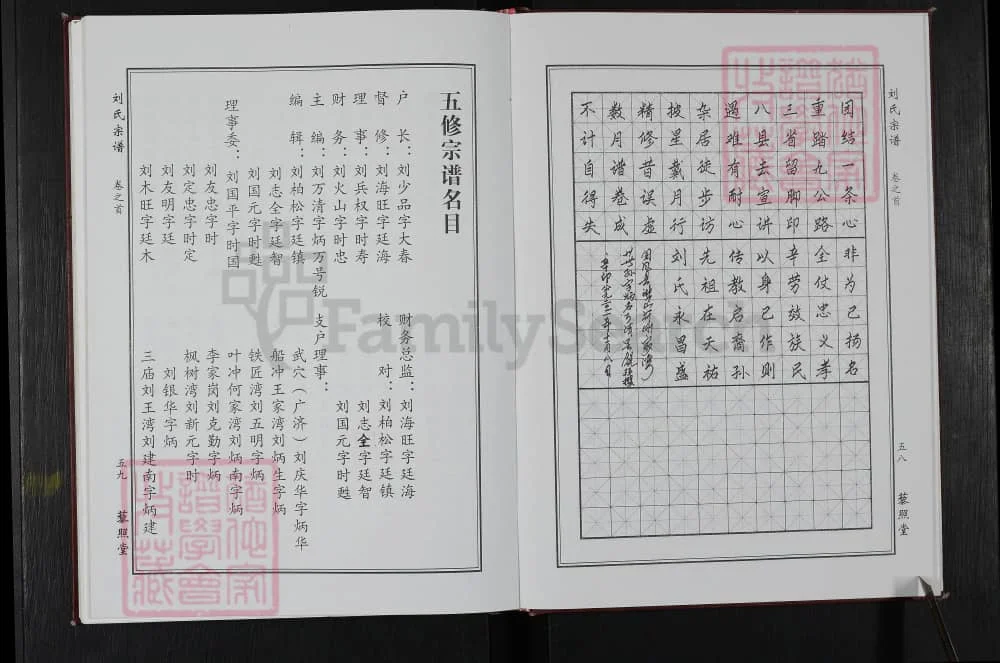 刘氏宗谱
卷之首
五八
藜照堂
团结一条心
重踏九公路
三省留脚印
八县去宣讲
遇难有耐心
杂居徒步访
披星戴月行
精修昔误虚
数月谱卷成
不计自得失
非为己扬名
全仗忠义孝
辛劳效族民
以身己作则
传教启裔孙
先祖在天祐
刘氏永昌盛
五修宗谱名目
户长：刘少品字大春
督修：刘海旺字廷海
理事：刘兵权字时寿
财务：刘火山字时忠
主编：刘万清字炳万号锐
编辑：刘柏松字廷镇
刘志全字廷智
刘国元字时甦
理事委：刘国平字时国
刘友忠字时
刘定忠字时定
刘友明字廷
刘木旺字廷木
财务总监：刘海旺字廷海
校对：刘柏松字廷镇
刘志全字廷智
刘国元字时甦
支户理事：
武穴（广济）刘庆华字炳华
船冲王家湾刘炳生字炳
铁匠湾刘五明字炳
叶冲何家湾刘炳南字炳
李家岗刘克勤字炳
枫树湾刘新元字时
刘银华字炳
三庙刘王湾刘建南字炳建
刘氏宗谱
卷之首
五九
藜照堂
FamilySearch